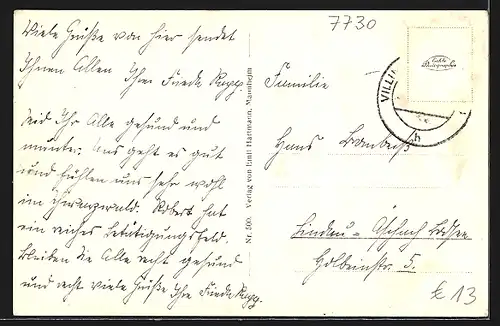 7730
Viele Grüße von hier sendet
Ihnen Allen Ihre Frieda Rapp.
Seid Ihr Alle gesund und
munter. Uns geht es gut
und fühlen uns sehr wohl
im Schwarzwald. Robert hat
ein reiches Betätigungsfeld.
Bleiben Sie Alle recht gesund
und recht viele Grüße Ihre Frieda Rapp.
Nr. 500. Verlag von Emil Hartmann, Mannheim
VILLI
Echte Photographie
Familie
Hans
Lindau-Aeschach Bodsee
Holbeinstr. 5.
€ 13